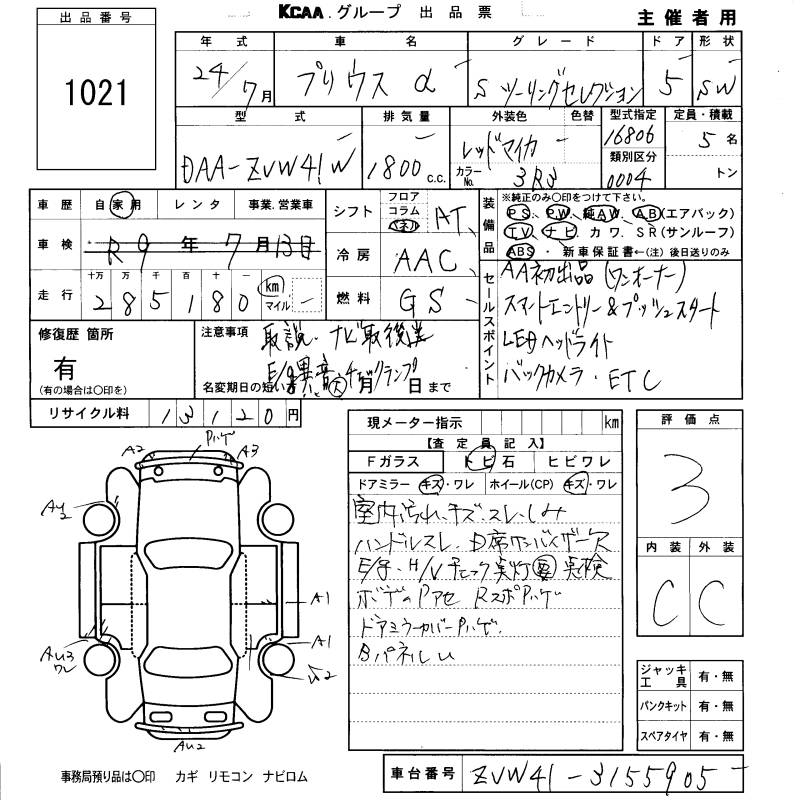 KCAA グループ 出品票
主催者用
出品番号
1021
年式 車名 グレード ドア 形状
24/7月 プリウス α S ツーリングセレクション 5 SW
型式 排気量 外装色 色替 型式指定 定員・積載
DAA-ZVW41W 1800 c.c. レッドマイカ 16806 5名
カラーNo. 3R3 類別区分 0004 トン
車歴 自家用 レンタ 事業.営業車
車検 R9年7月13日
走行 十万 万 千 百 十 一
285180 km マイル
シフト フロア コラム パネル AT
冷房 AAC
燃料 GS
装備品
※純正のみ○印をつけて下さい。
PS、PW、純AW、AB(エアバック)
TV、ナビ、カワ、SR(サンルーフ)
ABS・新車保証書←(注)後日送りのみ
セールスポイント
AA初出品(ワンオーナー)
スマートエントリー&プッシュスタート
LEDヘッドライト
バックカメラ・ETC
修復歴 箇所
有
(有の場合は○印を)
注意事項 取説・ナビ取後送
E/g異音大 チェックランプ有
名変期日の短い 月 日まで
リサイクル料 13120円
現メーター指示 km
【査定員記入】
Fガラス トビ石 ヒビワレ
ドアミラー キズ・ワレ ホイール(CP) キズ・ワレ
室内汚れ、キズ、スレ、しみ
ハンドルスレ、D席サンバイザー欠
E/g・H/Vチェック実灯 要点検
ボデーPアセ RスポPハゲ
ドアミラーカバーPハゲ.
BパネルU
評価点
3
内装 外装
C C
ジャッキ工具 有・無
パンクキット 有・無
スペアタイヤ 有・無
A2 Pハゲ A3
AU2
A1
AU3 ワレ
A1
U2
AU2
事務局預り品は○印 カギ リモコン ナビロム
車台番号 ZVW41-3155905